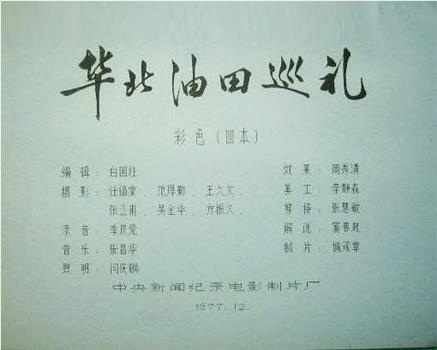 华北油田巡礼
彩色(四本)
编辑:白国柱
摄影:任锡棠、范厚勤、王久文、
张公甫、吴金华、方振久
录音:李民党
音乐:张昌华
照明:闫庆麟
效果:周秀清
美工:李静森
剪接:张慧敏
解说:
制片:
中央新闻纪录电影制片厂
1977.12.